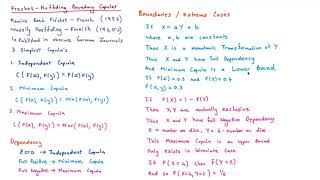 Frechet-Hoffding Boundary Copulas
Maurice Rene Frechet - French (1956)
Wassily Hoeffding - Finnish (1940's)
↳ Published in obscure German Journals
3 Simplest Copulas
1. Independent Copula
C(F(x), F(y)) = F(x)F(y)
2. Minimum Copula
C(F(x), F(y)) = Min(F(x), F(y))
3. Maximum Copula
C(F(x), F(y)) = Max(F(x), F(y))
Dependency
Zero → Independent Copula
Full Positive → Minimum Copula
Full Negative → Maximum Copula
Boundaries / Extreme Cases
If x = a y + b
where a, b are constants
Then X is a monotonic Transformation of Y
Thus X and Y have full Dependency
And Minimum Copula is a Lower Bound
If F(x) = 0.3 and F(y) = 0.4
F(x,y) = 0.3
If F(x) = 1 - F(y)
Then X Y are mutually exclusive
Thus X and Y have full Negative Dependency
X = number on dice, Y = 6 - number on die
This Maximum Copula is an upper Bound
Only Exists in Bivariate Case
If F(x=4) then F(Y=2)
And so F(x=4, Y=2) = 1/6